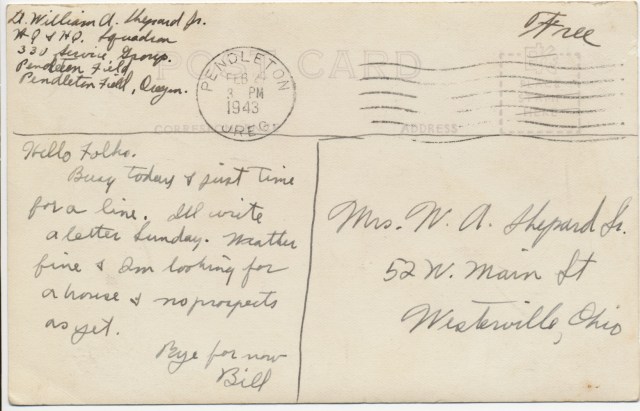 Lt. William A. Shepard Jr.
HQ & HQ. Squadron
330 Service Group.
Pendleton Field
Pendleton Field, Oregon.
Free
POST CARD
PENDLETON
FEB
3 PM
1943
OREG.
CORRESPONDENCE
ADDRESS
Hello Folks.
Busy today & just time
for a line. Ill write
a letter Sunday. Weather
fine & Im looking for
a house & no prospects
as yet.
Bye for now
Bill
Mrs. W. A. Shepard Sr.
52 W. Main St
Westerville, Ohio